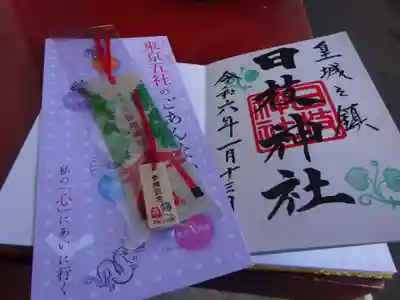 東京五社のごあんない
私の「心」にあいに行く
皇城之鎮
日枝神社
令和六年一月十三日